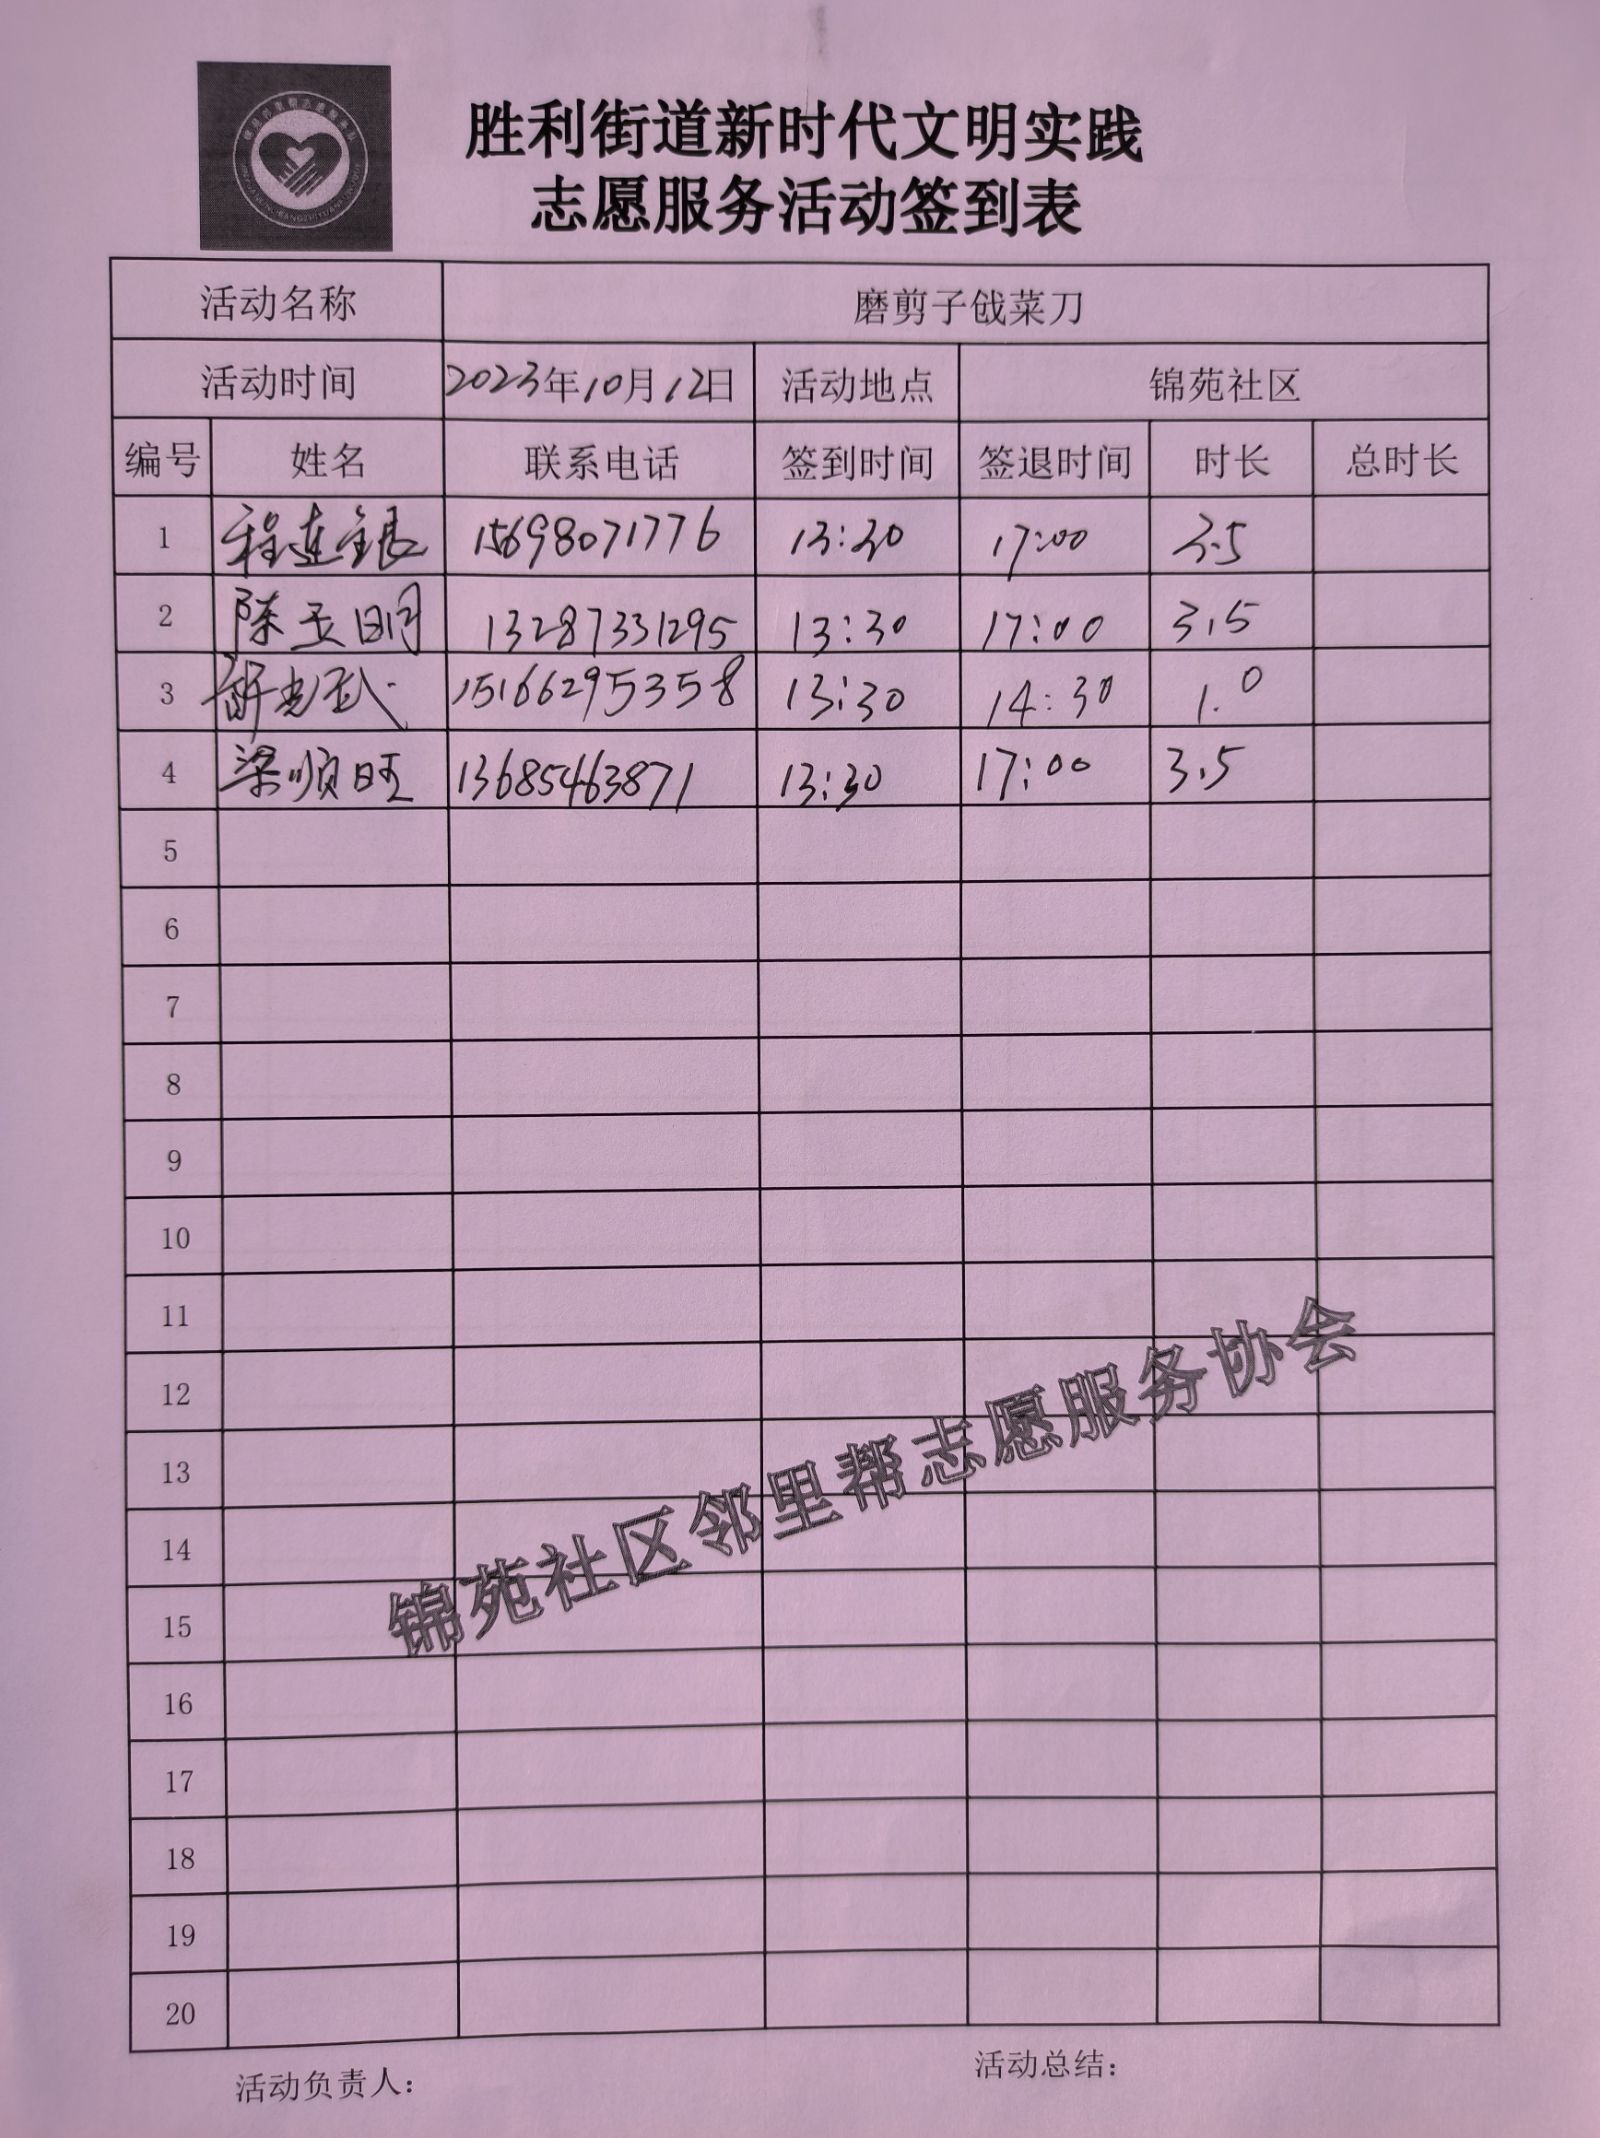 胜利街道新时代文明实践
志愿服务活动签到表
活动名称 磨剪子戗菜刀
活动时间 2023年10月12日 活动地点 锦苑社区
编号 姓名 联系电话 签到时间 签退时间 时长 总时长
1 程连银 15698071776 13:30 17:00 3.5
2 陈玉明 13287331295 13:30 17:00 3.5
3 15166295358 13:30 14:30 1.0
4 梁顺旺 13685463871 13:30 17:00 3.5
5
6
7
8
9
10
11
12
13
14
15
16
17
18
19
20
锦苑社区邻里帮志愿服务协会
活动负责人： 活动总结：